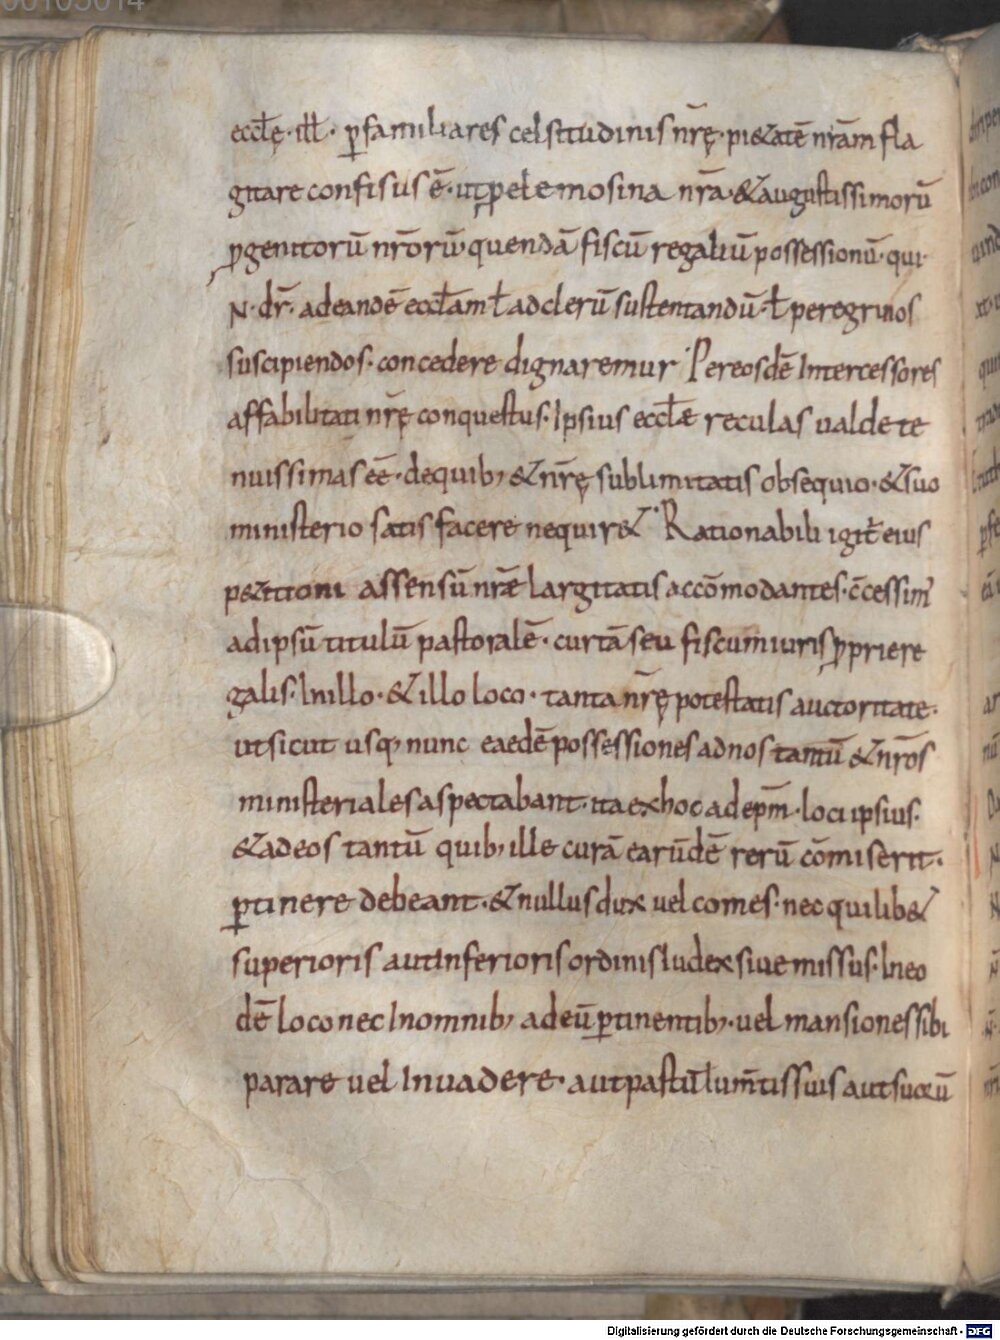 00105014
eccłę· ill̅· ꝑfamiliares celsitudinis nr̄ę· pi&atē nrām fla
gitare confisus ē· ut p elemosina nrā· & augustissimorū
ꝓgenitorū nrōrū· quendā fiscū regaliū possessionū· qui·
N· dr̄· ad eandē eccłam ł ad clerū sustentandū· ł peregrinos
suscipiendos· concedere dignaremur· Per eosdē Intercessores
affabilitati nr̄ę conquestus· Ipsius eccłæ reculas ualde te
nuissimas eē· de quib; & nr̄ę sublimitatis obsequio· & suo
ministerio satis facere nequir&· Rationabili igit̄ eius
p&itioni assensū nrǣ largitatis accōmodantes· c̄cessim̄
ad ipsū titulū pastoralē· curtā seu fiscum iuris ꝓprie re
galis· In illo· & illo loco· tanta nr̄ę potestatis auctoritate·
ut sicut usq; nunc eaedē possessiones ad nos tantū & nrōs
ministeriales aspectabant· ita ex hoc ad epm̄· loci ipsius·
& ad eos tantū quib; ille curā earūdē rerū cōmiserit·
ꝑtinere debeant· & nullus dux uel comes· nec quilib&
superioris aut inferioris ordinis Iudex siue missus· In eo
dē loco nec In omnib; ad eū ꝑtinentib;· uel mansiones sibi
parare uel Inuadere· aut pastū ł um̄tis suis aut suorū
Digitalisierung gefördert durch die Deutsche Forschungsgemeinschaft - DFG